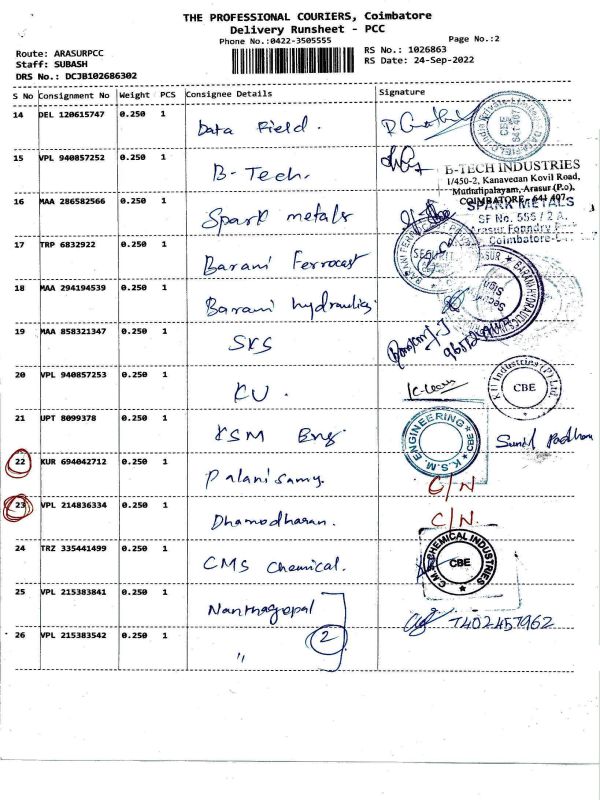 THE PROFESSIONAL COURIERS, Coimbatore
Delivery Runsheet - PCC
Phone No.:0422-3505555
Page No.:2
Route: ARASURPCC
RS No.: 1026863
Staff: SUBASH
RS Date: 24-Sep-2022
DRS No.: DCJB102686302
S No Consignment No Weight PCS Consignee Details Signature
14 DEL 120615747 0.250 1 Data Field.
CBE
641 407
15 VPL 940857252 0.250 1 B-Tech.
B-TECH INDUSTRIES
1/450-2, Kanavedan Kovil Road,
Muthalipalayam, Arasur (P.o),
COIMBATORE - 641 407
16 MAA 286582566 0.250 1 Spark metals
SPARK METALS
SF No. 555 / 2 A,
Arasur Foundry
Coimbatore-
17 TRP 6832922 0.250 1 Barani Ferrocast
18 MAA 294194539 0.250 1 Barani hydraulics
BARANI HYDRAULICS
19 MAA 858321347 0.250 1 SKS
20 VPL 940857253 0.250 1 KU.
K U Industries (P) Ltd.
CBE
21 UPT 8099378 0.250 1 KSM Eng.
K.S.M. ENGINEERING
CBE
Sunil Padhan
22 KUR 694042712 0.250 1 Palanisamy.
C/N
23 VPL 214836334 0.250 1 Dhamodharan.
C/N.
24 TRZ 335441499 0.250 1 CMS Chemical.
C.M.S. CHEMICAL INDUSTRIES
CBE
25 VPL 215383841 0.250 1 Nanthagopal
7402457962
26 VPL 215383542 0.250 1 "
2